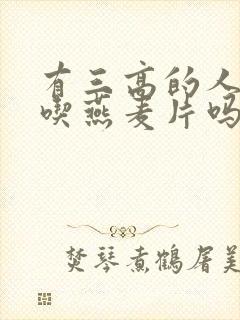 有三高的人
喫燕麦片吗
焚琴煮鹤屠美